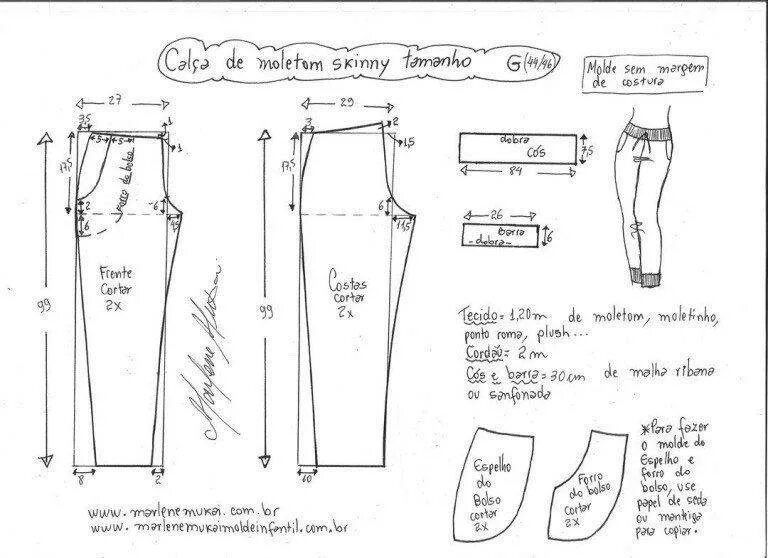 Calça de moletom skinny tamanho G (44/46)
Molde sem margem
de costura
27
3,5
1
5
5
1
17,5
Forro do bolso
2
6
6
4,5
99
Frente
Cortar
2x
8
2
29
3
2
1,5
17,5
6
11,5
99
Costas
cortar
2x
10
Marlene Mukai
dobra
cós
7,5
84
26
barra
-dobra-
6
Tecido = 1,20m de moletom, moletinho,
ponto roma, plush...
Cordaũ = 2m
Cós e barra = 30cm de malha ribana
ou sanfonada
Espelho
do
Bolso
cortar
2x
Forro
do bolso
cortar
2x
*Para fazer
o molde do
Espelho e
forro do
bolso, use
papel de seda
ou manteiga
para copiar.
www.marlenemukai.com.br
www.marlenemukaimoldeinfantil.com.br